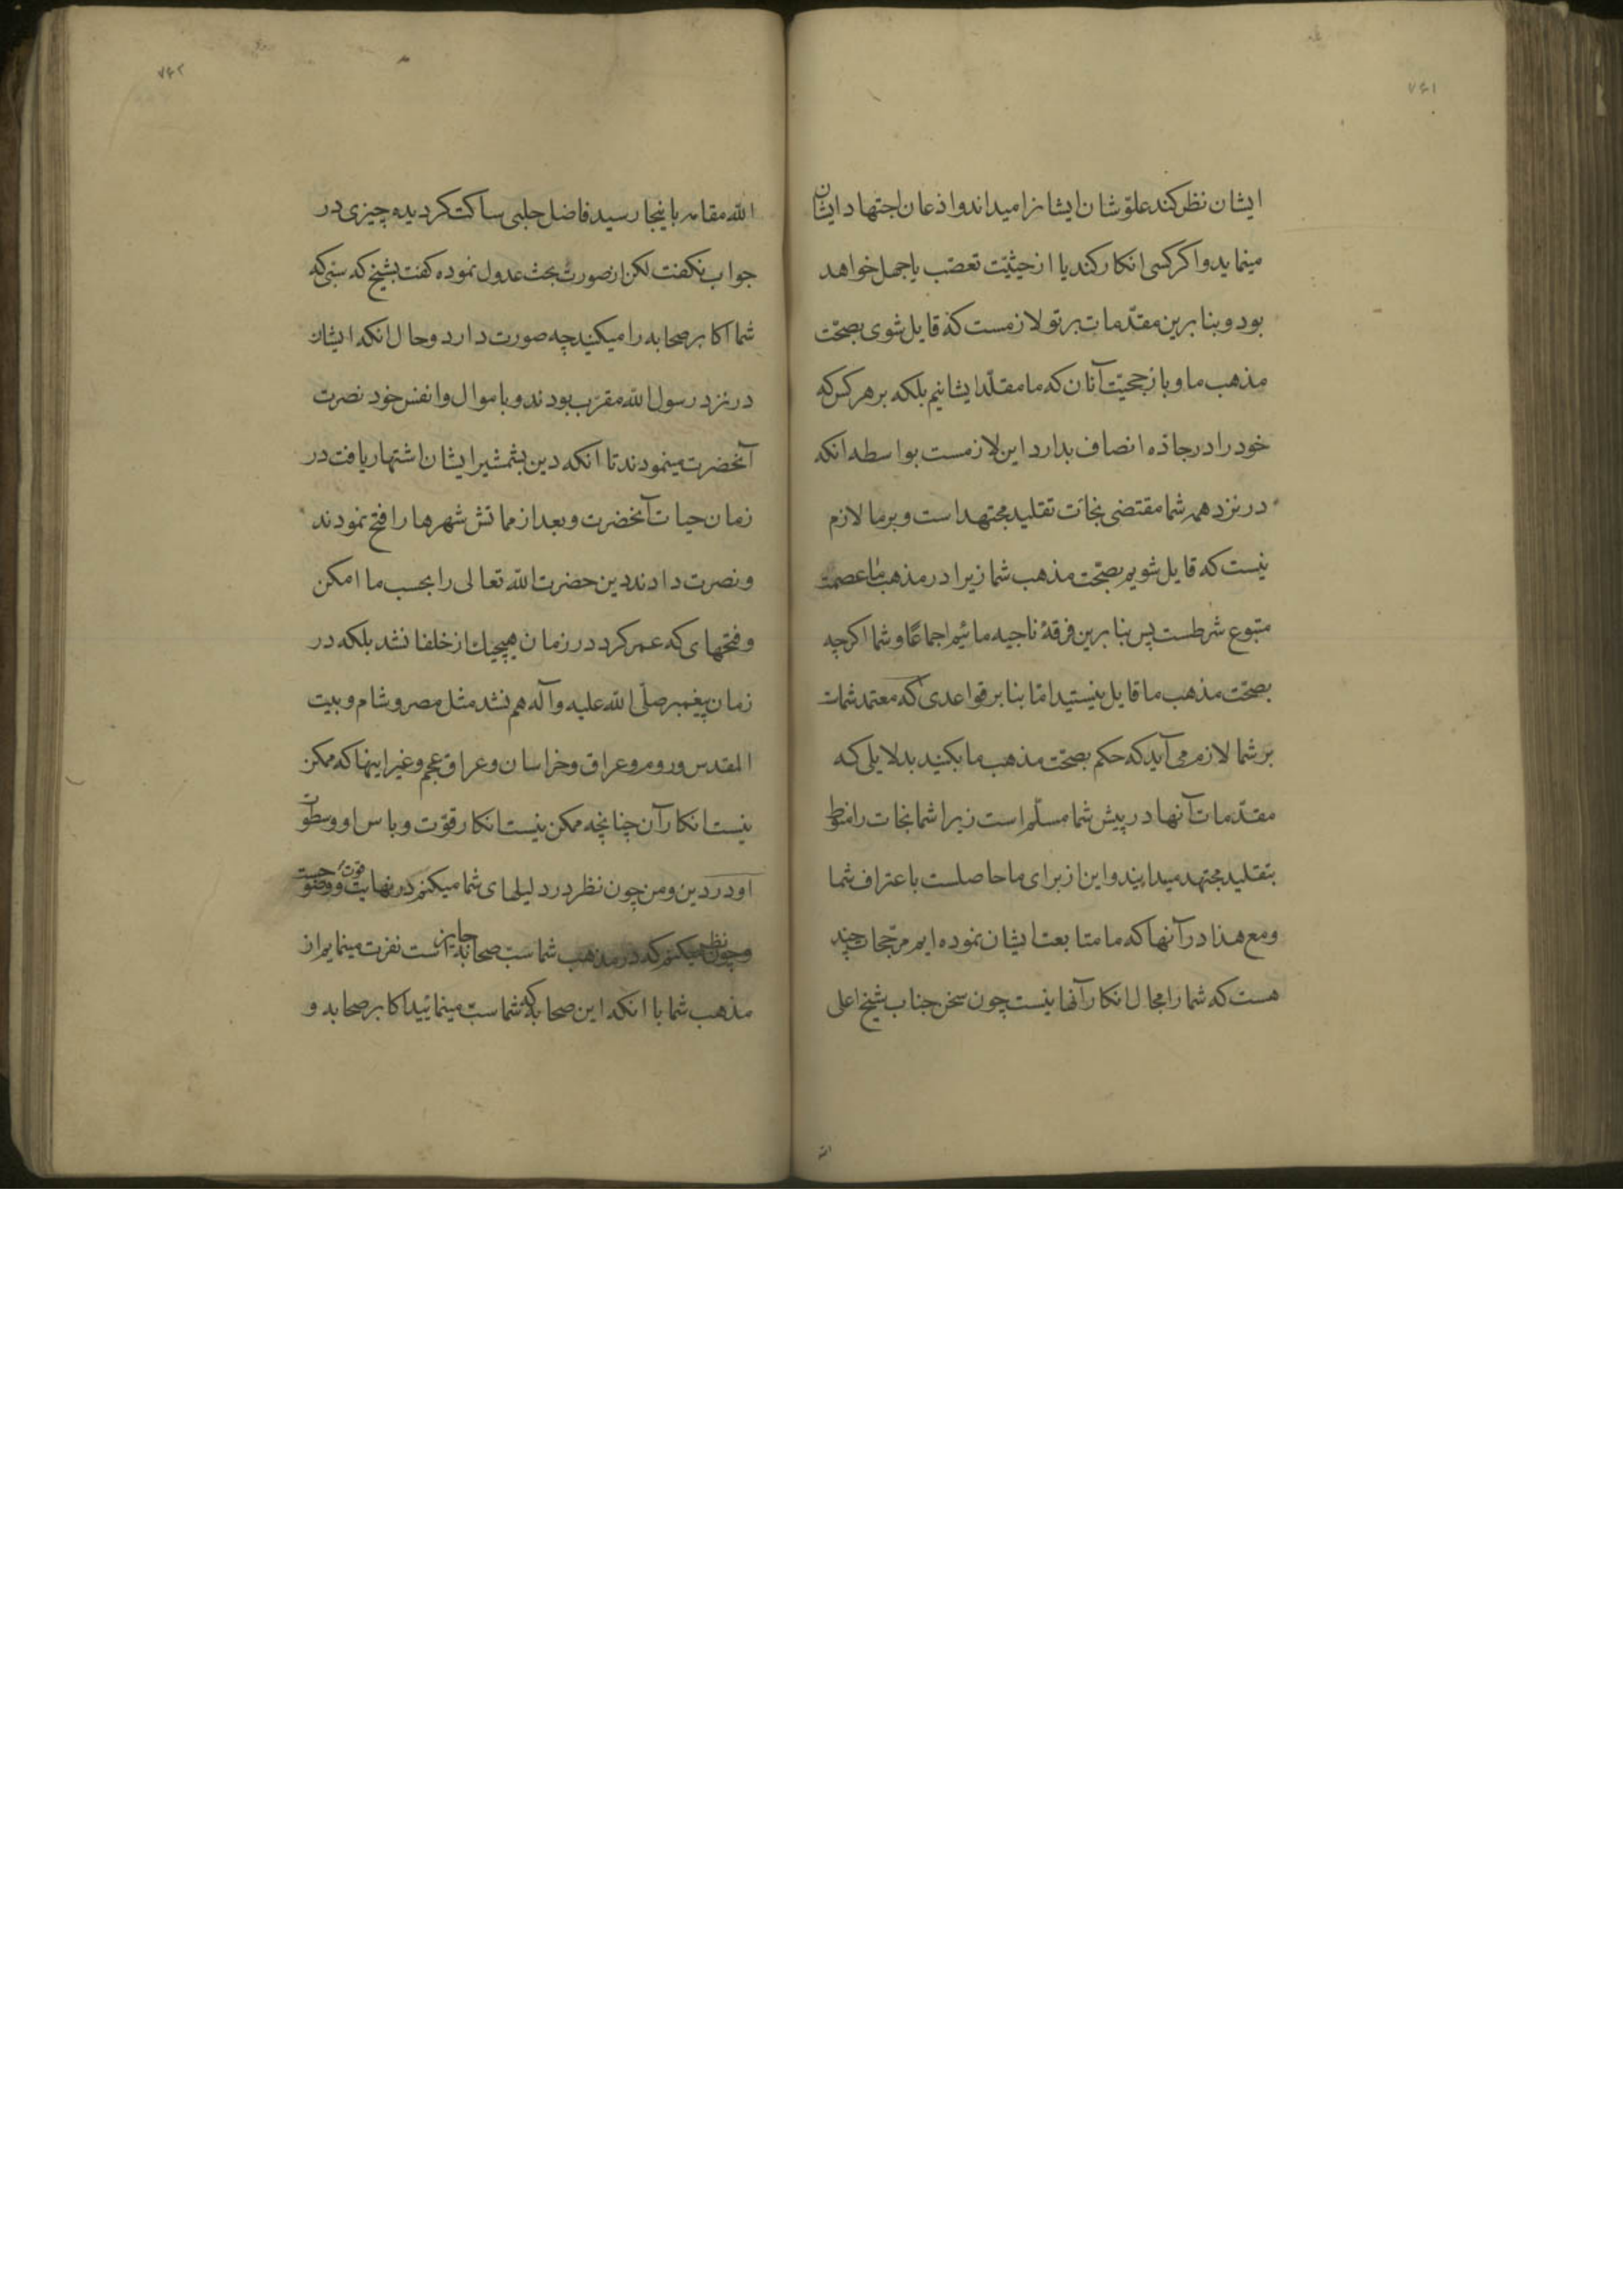 ۷۶۱
ایشان نظر کند علوّ شان ایشانرا میداند و اذعان اجتهاد ایشان
مینماید و اکر کسی انکار کند یا از حیثیّت تعصّب یا جهل خواهد
بود و بنا برین مقدّمات بر تو لازمست که قایل شوی بصحّت
مذهب ما و باز حجیّت آنان که ما مقلّد ایشانیم بلکه بر هر کس که
خود را در جادّه انصاف بدارد این لازمست بواسطه انکه
در نزد همه شما مقتضی نجات تقلید مجتهد است و بر ما لازم
نیست که قایل شویم بصحّت مذهب شما زیرا در مذهب ما عصمت
متبوع شرطست پس بنا برین فرقهٔ ناجیه مائیم اجماعًا و شما اکرچه
بصحّت مذهب ما قایل نیستید امّا بنا بر قواعدی که معتمد شمات
بر شما لازم می آید که حکم بصحّت مذهب ما بکنید بدلایلی که
مقدّمات آنها در پیش شما مسلّم است زیرا شما نجات را منوط
بتقلید مجتهد میدانید و این از برای ما حاصلست باعتراف شما
و مع هذا در آنها که ما متابعت ایشان نموده ایم مرجّحات چند
هست که شما را مجال انکار آنها نیست چون سخن جناب شیخ اعلی
الله
۷۶۲
الله مقامه باینجا رسید فاضل حلبی ساکت کردیده چیزی در
جواب نکفت لکن از صورت بحث عدول نموده کفت بشیخ که سبّی که
شما اکابر صحابه را میکنید چه صورت دارد و حال انکه ایشان
در نزد رسول الله مقرّب بودند و باموال و انفس خود نصرت
آنحضرت مینمودند تا انکه دین بشمشیر ایشان اشتهار یافت در
زمان حیات آنحضرت و بعد از مماتش شهرها را فتح نمودند
و نصرت دادند دین حضرت الله تعالی را بحسب ما امکن
و فتحهای که عمر کرد در زمان هیچیک از خلفا نشد بلکه در
زمان پیغمبر صلّی الله علیه و آله هم نشد مثل مصر و شام و بیت
المقدس و روم و عراق و خراسان و عراق عجم و غیر اینها که ممکن
نیست انکار آن چنانچه ممکن نیست انکار قوّت و باس او و سطوت
او در دین و من چون نظر در دلیلهای شما میکنم در نهایت قوت
و چون نظر میکنم که در مذهب شما سبّ صحابه جایز است نفرت مینمایم از
مذهب شما با انکه این صحابه که شما سبّ مینمائید اکابر صحابه و